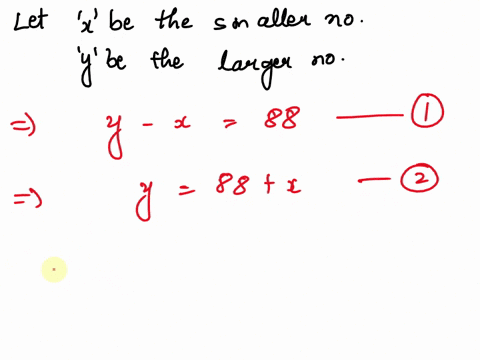 Let 'x' be the smaller no.
'y' be the larger no.
⇒ y - x = 88 —— ①
⇒ y = 88 + x — ②